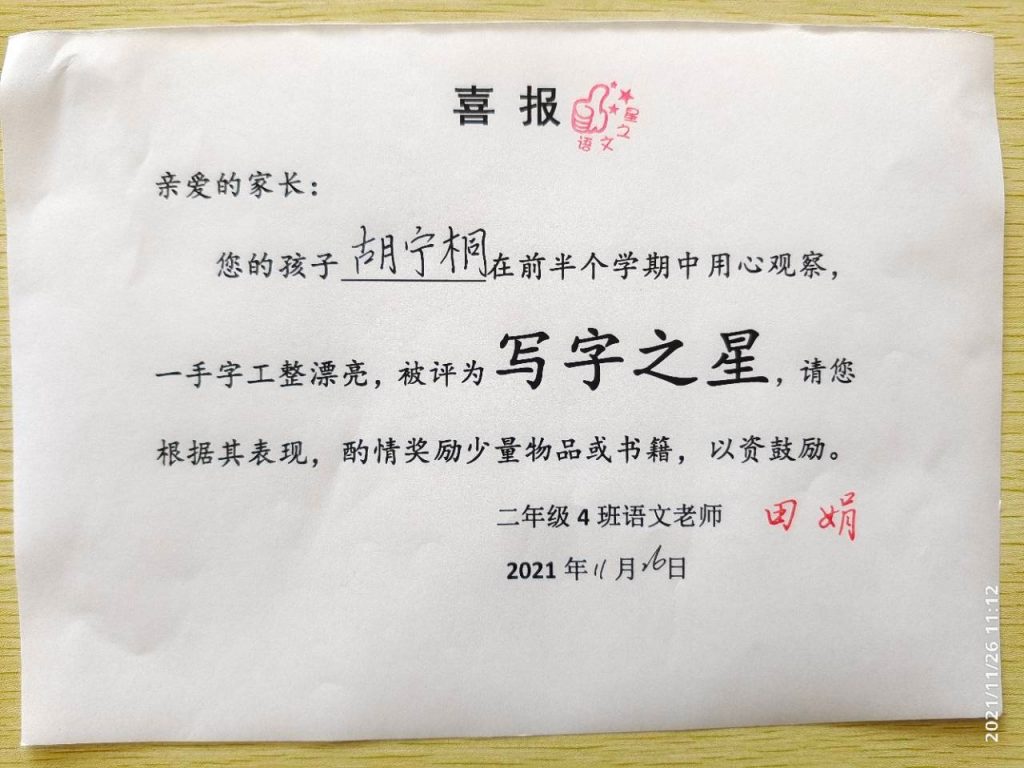 喜报
语文之星
亲爱的家长：
您的孩子胡宁桐在前半个学期中用心观察，
一手字工整漂亮，被评为写字之星，请您
根据其表现，酌情奖励少量物品或书籍，以资鼓励。
二年级4班语文老师 田娟
2021年11月26日
2021/11/26 11:12